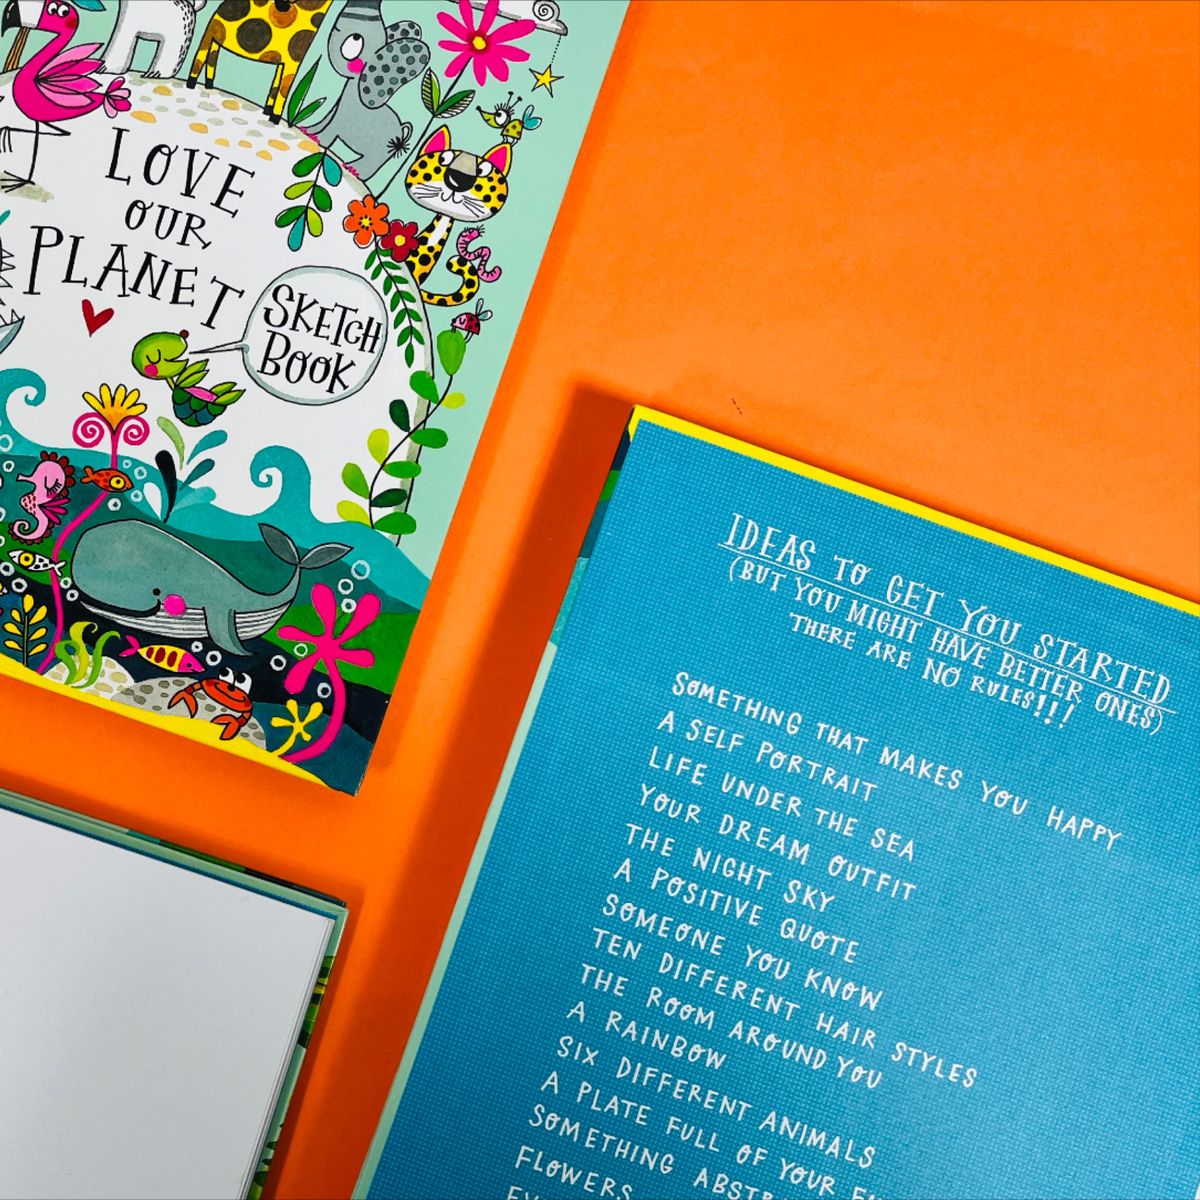 LOVE
OUR
PLANET
SKETCH
BOOK
IDEAS TO GET YOU STARTED
(BUT YOU MIGHT HAVE BETTER ONES)
THERE ARE NO RULES!!!
SOMETHING THAT MAKES YOU HAPPY
A SELF PORTRAIT
LIFE UNDER THE SEA
YOUR DREAM OUTFIT
THE NIGHT SKY
A POSITIVE QUOTE
SOMEONE YOU KNOW
TEN DIFFERENT HAIR STYLES
THE ROOM AROUND YOU
A RAINBOW
SIX DIFFERENT ANIMALS
A PLATE FULL OF YOUR
SOMETHING
FLOWERS